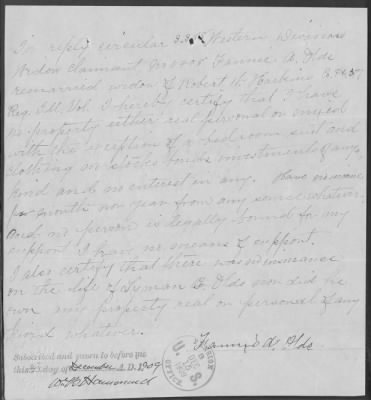 In reply circular Western Division
Widow claimant now Fannie A. Olds
remarried widow of Robert
Reg. Ill. Vol. I hereby certify that I have
no property either real personal or mixed
with the exception of a bedroom suit and
clothing no stocks bonds investments of any
kind and no interest in any. Have no income
per month nor year from any source whatever.
and no person is legally bound for my
support I have no means of support.
I also certify that there was no insurance
on the life of Lyman E. Olds nor did he
own any property real or personal of any
kind whatever.
Fannie A. Olds
Subscribed and sworn to before me
this day of December A.D. 1909
Hammond
U. S.
DEC